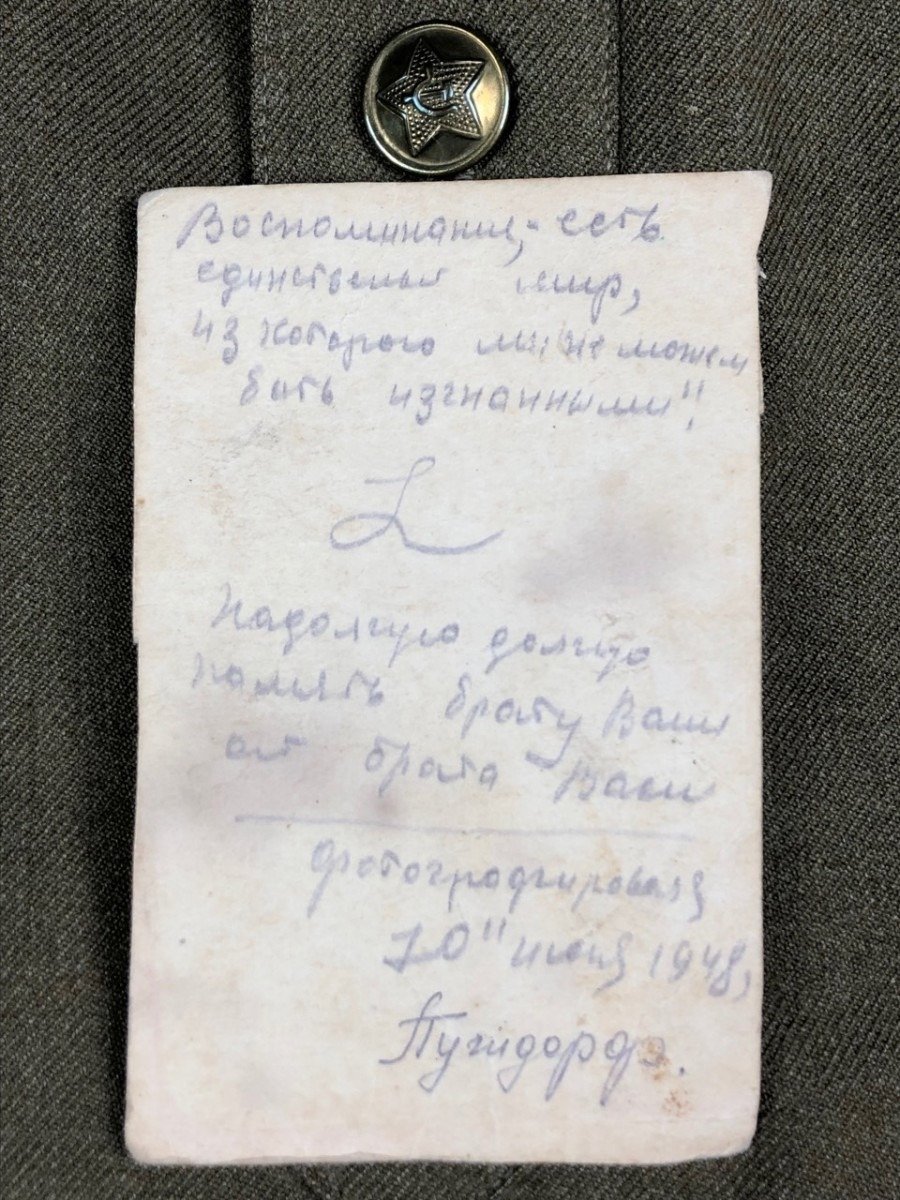 Воспоминание, - есть
единственый мир,
из которого мы не можем
быть изгнанными"!
Надолгую долгую
память брату Ваши
от брата Васи
фотографировался
10" июня 1948,
Пугидорф.